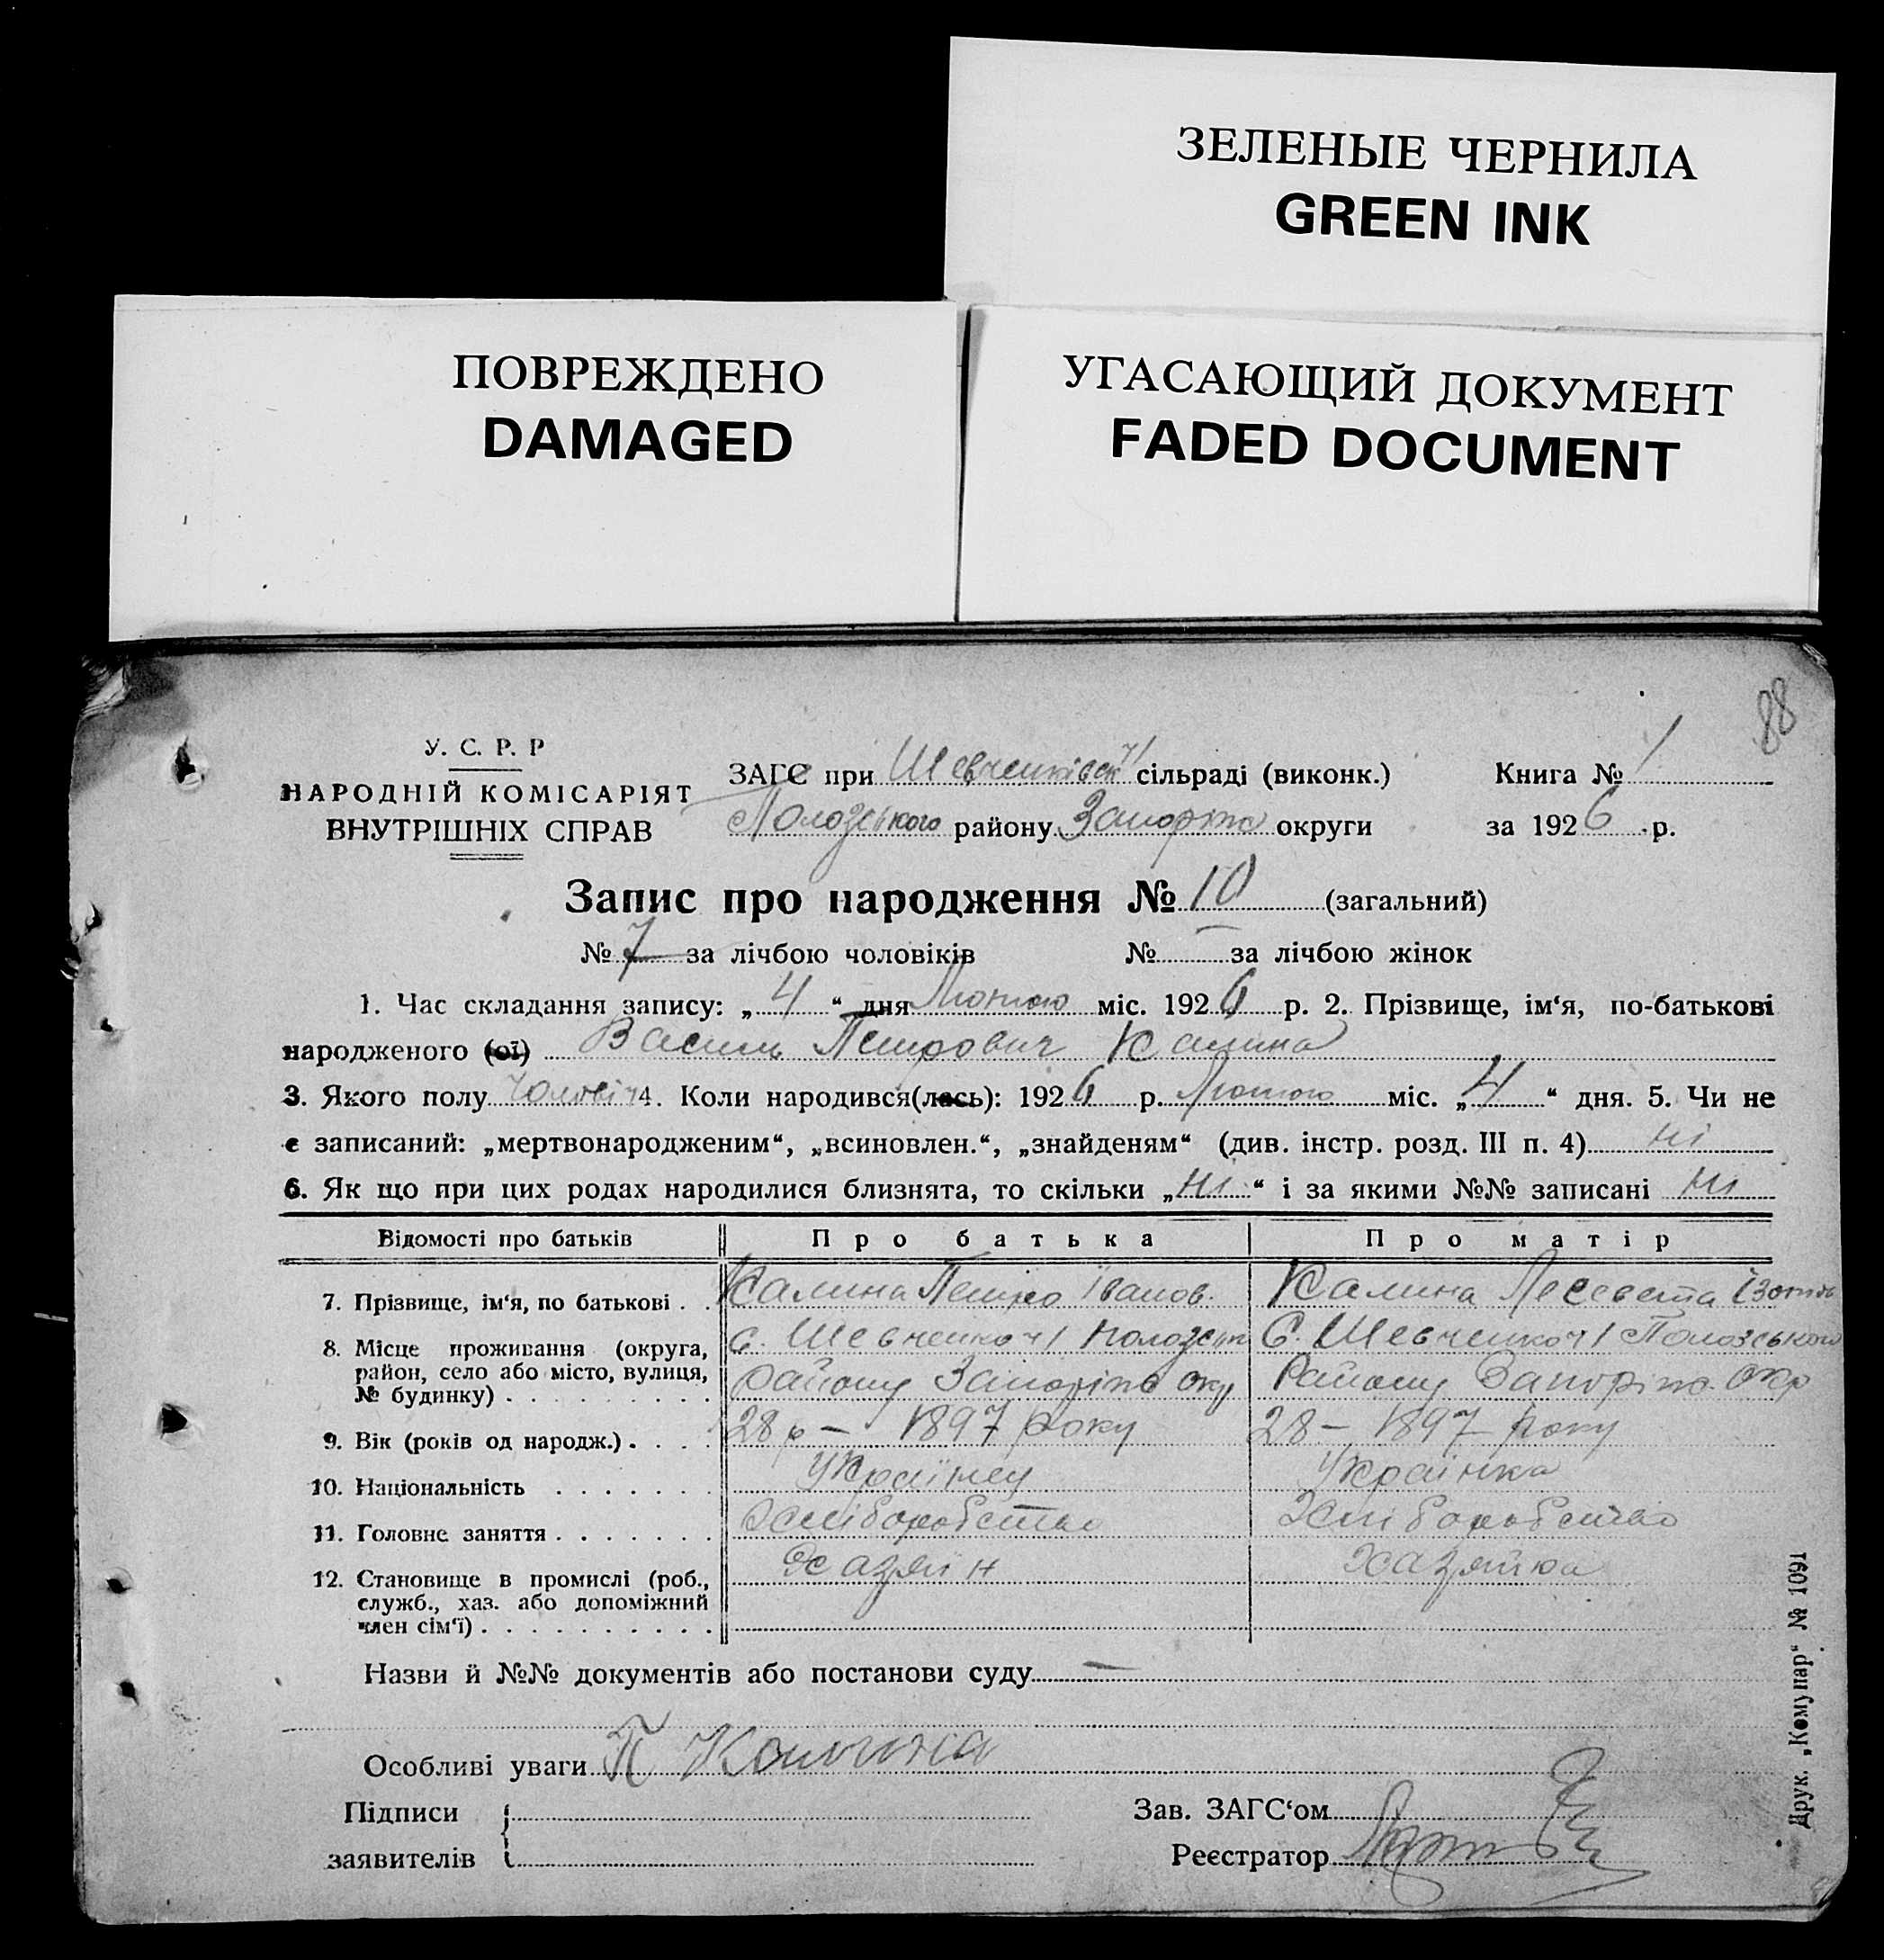 ЗЕЛЕНЫЕ ЧЕРНИЛА
GREEN INK
ПОВРЕЖДЕНО
DAMAGED
УГАСАЮЩИЙ ДОКУМЕНТ
FADED DOCUMENT
88
У. С. Р. Р
НАРОДНІЙ КОМІСАРІЯТ
ВНУТРІШНІХ СПРАВ
ЗАГС при Шевченківск ч/ сільраді (виконк.) Книга № 1
Пологського району Запоріж округи за 1926 р.
Запис про народження № 10 (загальний)
№ 7 за лічбою чоловіків № — за лічбою жінок
1. Час складання запису: „4“ дня Лютого міс. 1926 р. 2. Прізвище, ім‘я, по-батькові
народженого (ої) Василь Петрович Калина
3. Якого полу чоловіч 4. Коли народився(лась): 1926 р. Лютого міс. „4“ дня. 5. Чи не
є записаний: „мертвонародженим“, „всиновлен.“, „знайденям“ (див. інстр. розд. III п. 4) ні
6. Як що при цих родах народилися близнята, то скільки „ні“ і за якими №№ записані ні
Відомості про батьків Про батька Про матір
7. Прізвище, ім‘я, по батькові . . Калина Петро Іванов. Калина
8. Місце проживання (округа, с. Шевченко ч/ с. Шевченко ч/
район, село або місто, вулиця, району Запоріж окр Району Запоріж. Окр
№ будинку) . . . . . . . . .
9. Вік (років од народж.) . . . . 28 р – 1897 року 28 – 1897 року
10. Національність . . . . . . . Українец Українка
11. Головне заняття . . . . . . . Хліборобство Хліборобство
12. Становище в промислі (роб., Хазяїн Хазяйка
служб., хаз. або допоміжний
член сім‘ї) . . . . . . . . . .
Назви й №№ документів або постанови суду —
Особливі уваги П Калина
Підписи
заявителів
Зав. ЗАГС‘ом
Реєстратор
Друк. „Комунар“ № 1091